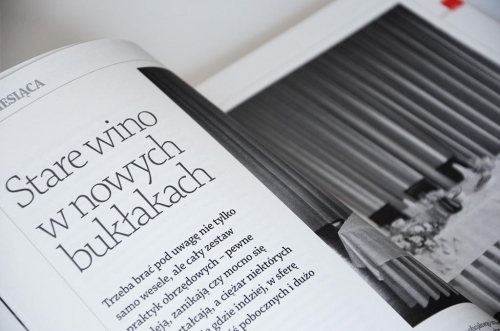 Stare wino
w nowych
bukłakach
Trzeba brać pod uwagę nie tylko
samo wesele, ale cały zestaw
praktyk obrzędowych – pewne
zanikają czy mocno się
a ciężar niektórych
gdzie indziej, w sferę
pobocznych i dużo